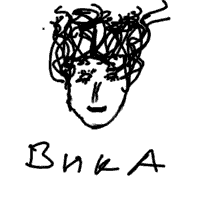 Вика